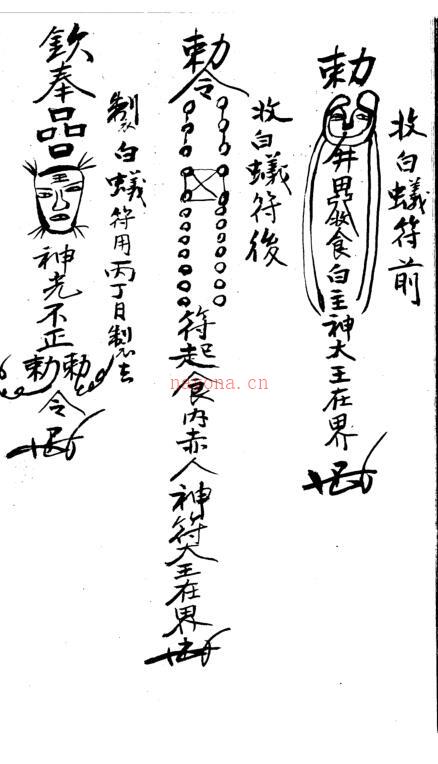 收白蟻符前
勅
食白主神大王在界
收白蟻符後
勅令
符起食内赤人神符大王在界
製白蟻符用丙丁日製
欽奉
品
神光不正
勅勅
令
nayona.cn